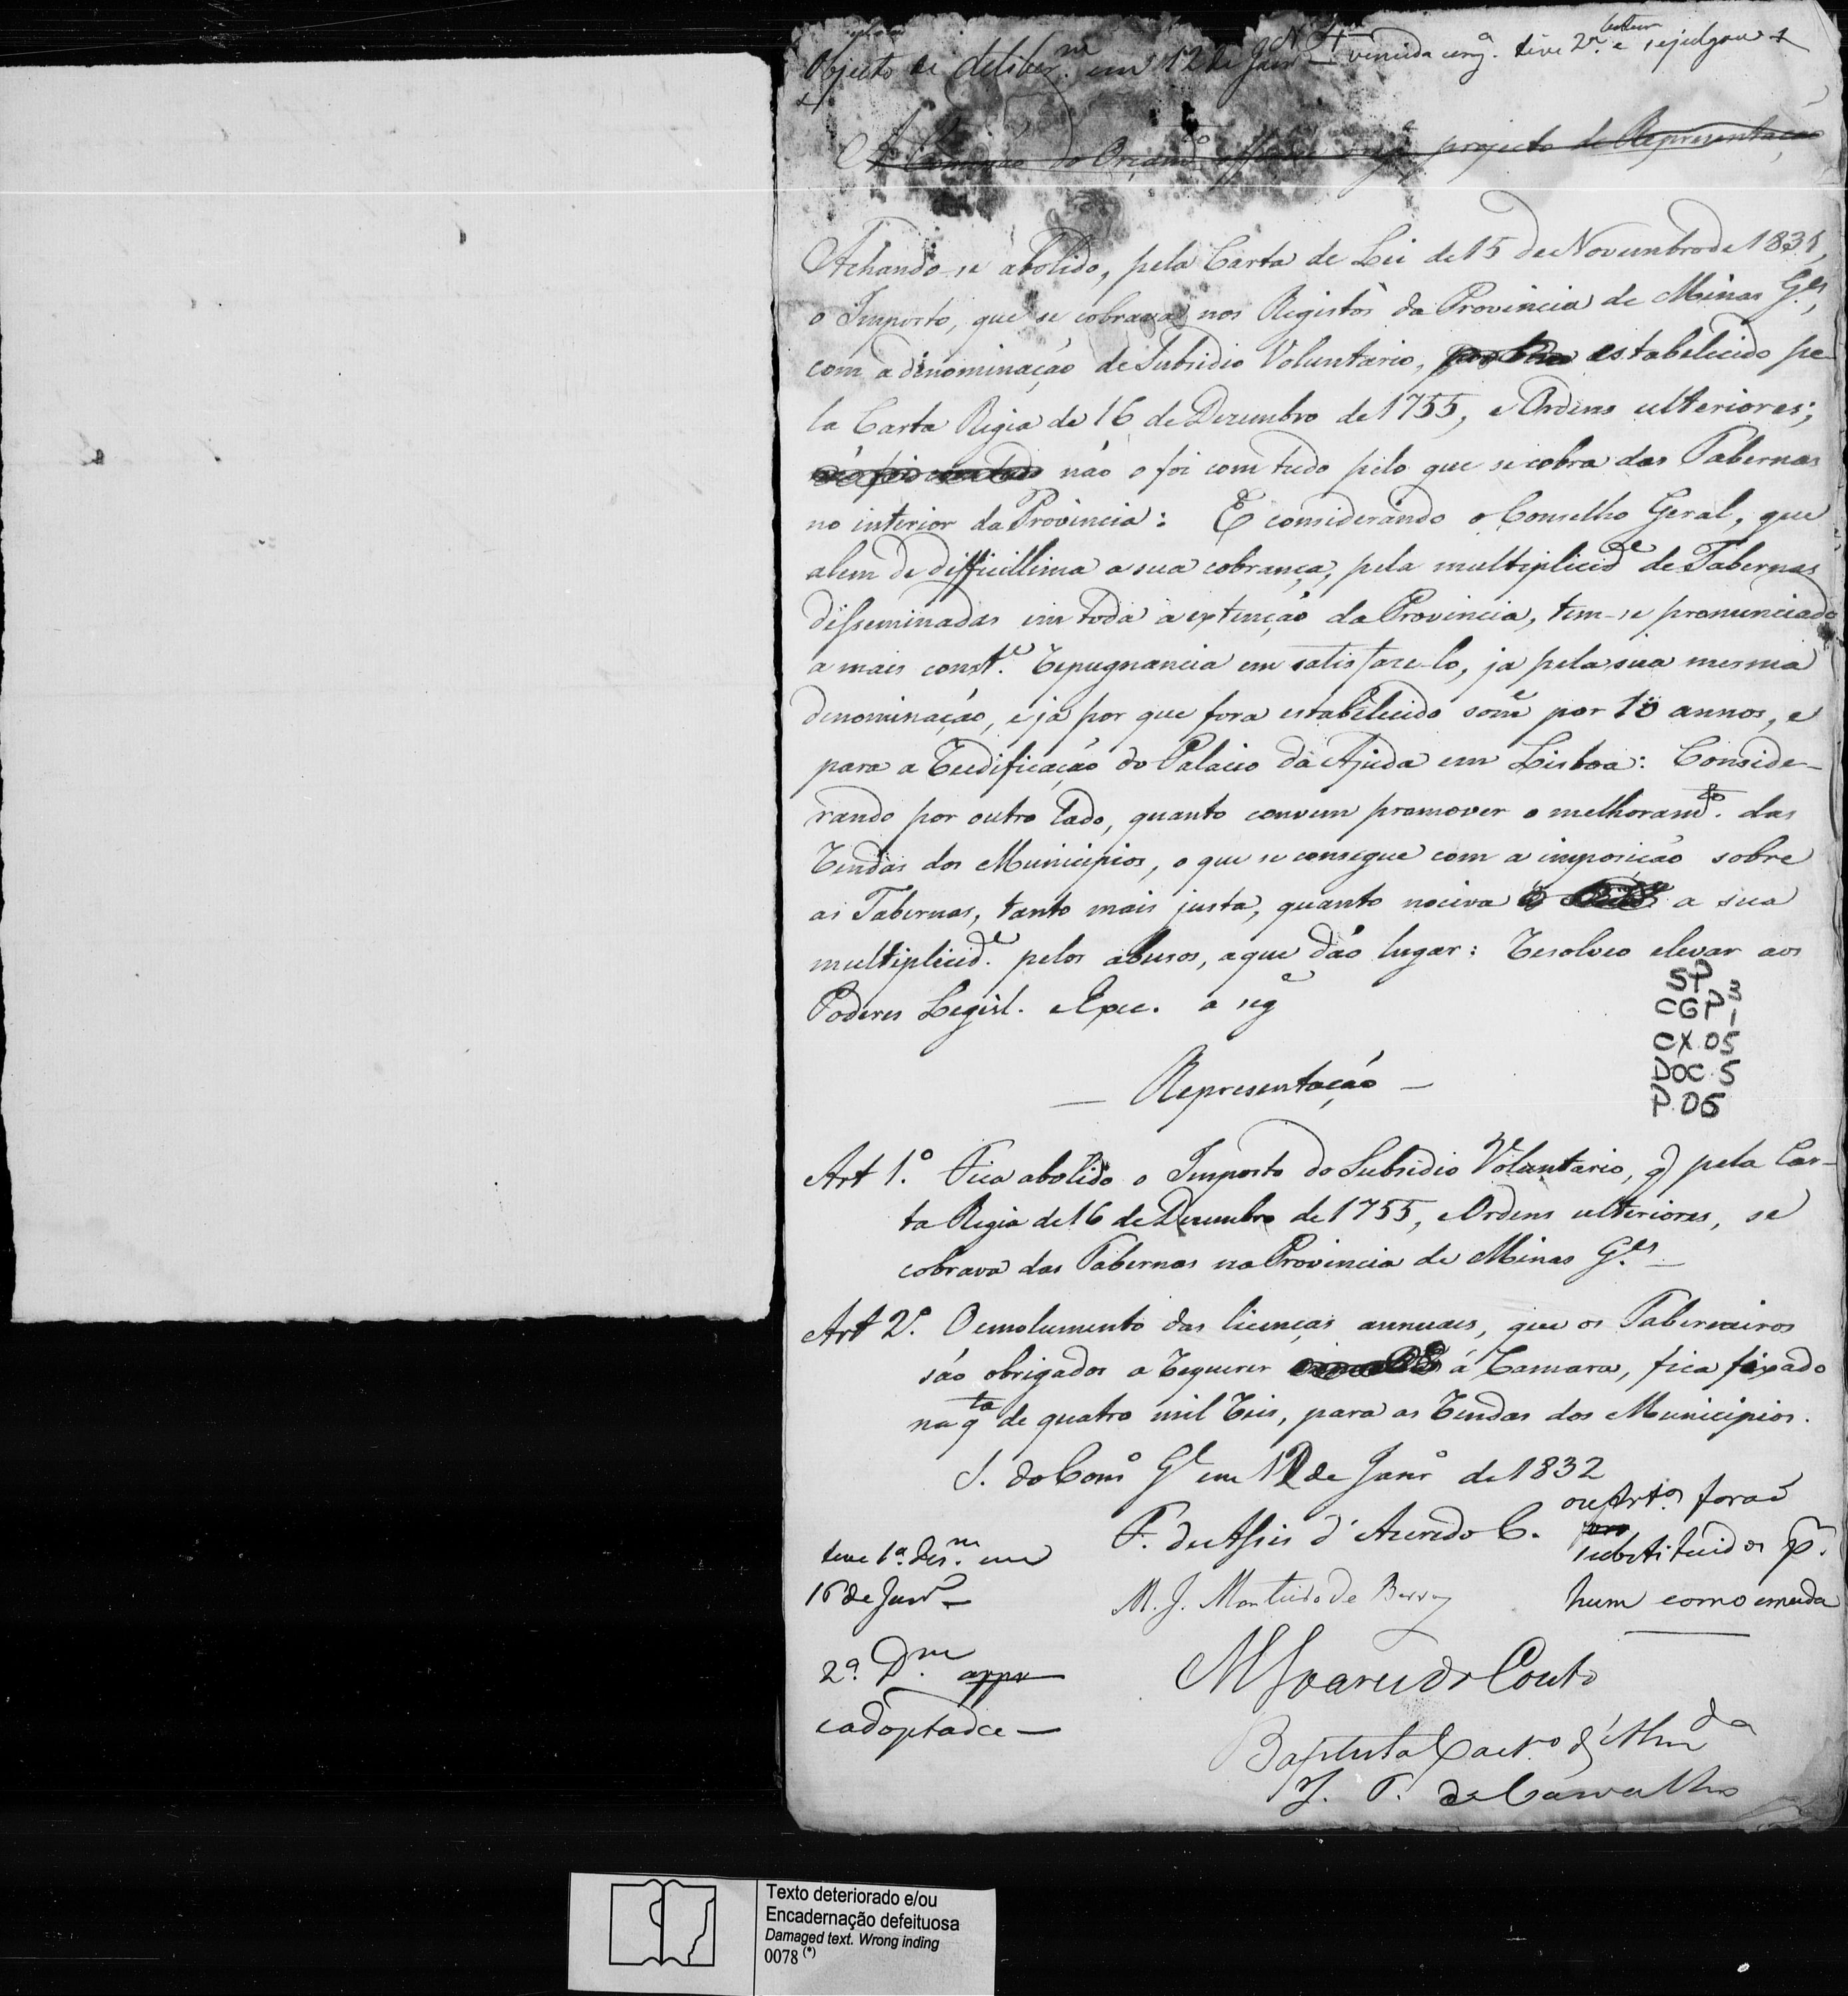 Nº 4
Objecto de deliber.m em 12 de Janrº vencida urg.a teve 2.a leitura e se julgou
A Comissão do Orçamto offerece o seg.e projecto de Representação
Achando-se abolido, pela Carta de Lei de 15 de Novembro de 1831,
o Imposto, que se cobrava nos Registos da Provincia de Minas G.es,
com a denominação de Subsidio Voluntario, estabelecido pe-
la Carta Regia de 16 de Dezembro de 1755, e Ordens ulteriores;
não foi com tudo não o foi com tudo pelo que se cobra das Tabernas
no interior da Provincia: E considerando o Conselho Geral, que
alem de difficillima a sua cobrança, pela multiplicid.e de Tabernas
disseminadas em toda a extenção da Provincia, tem-se pronunciado
a mais const.e repugnancia em satisfaze-lo, ja pela sua mesma
denominação, e já por que fora estabelecido som.e por 10 annos, e
para a reedificação do Palacio da Ajuda em Lisboa: Conside-
rando por outro lado, quanto convem promover o melhoramto. das
rendas dos Municipios, o que se consegue com a imposição sobre
as Tabernas, tanto mais justa, quanto nociva a sua
multiplicid.e pelos abusos, a que dão lugar: resolveo elevar aos
Poderes Legisl. e Exec. a seg.e
— Representação —
SP
CGP 1
CX. 05
DOC. 5
P. 06
Art 1.º Fica abolido o Imposto do Subsidio Voluntario, q̃ pela Car-
ta Regia de 16 de Dezembro de 1755, e Ordens ulteriores, se
cobrava das Tabernas na Provincia de Minas G.es —
Art 2.º O emolumento das licenças annuaes, que os Taberneiros
são obrigados a requerer á Camara, fica fixado
na q.ta de quatro mil reis, para as rendas dos Municipios.
S. do Cons.º G.l em 12 de Janr.º de 1832
F. de Assis d'Azeredo C.
M. J. Monteiro de Barros
M Soares do Couto
Baptista Caet.º d'Alm.da
J. F. de Carvalho
os Art.os forão
substituidos p.r
hum como emenda
teve 1.a dis.m em
16 de Janrº —
2.a D.m appr
e adoptada —
Texto deteriorado e/ou
Encadernação defeituosa
Damaged text. Wrong inding
0078 (*)